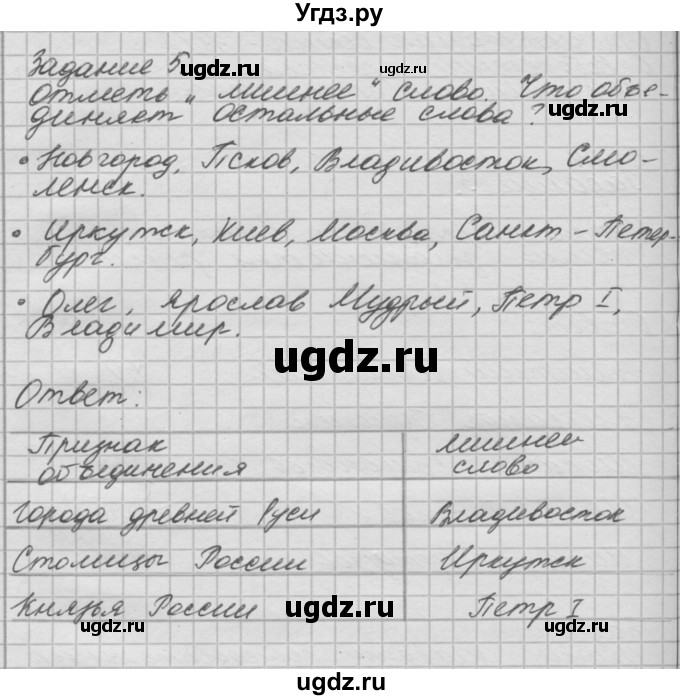 Угдз.ру
Задание 5
ugdz.ru
ugdz.ru
Отметь „ лишнее " слово. Что объе-
диняет остальные слова?
• Новгород, Псков, Владивосток, Смо-
ленск.
• Иркутск, Киев, Москва, Санкт - Петер-
бург.
• Олег, Ярослав Мудрый, Петр I,
Владимир.
ugdz.ru
Ответ:
Признак лишнее
объединения слово
Города древней Руси Владивосток
Столицы России Иркутск
Князья России Петр I
ugdz.ru
ugdz.ru
ugdz.ru
ugdz.ru